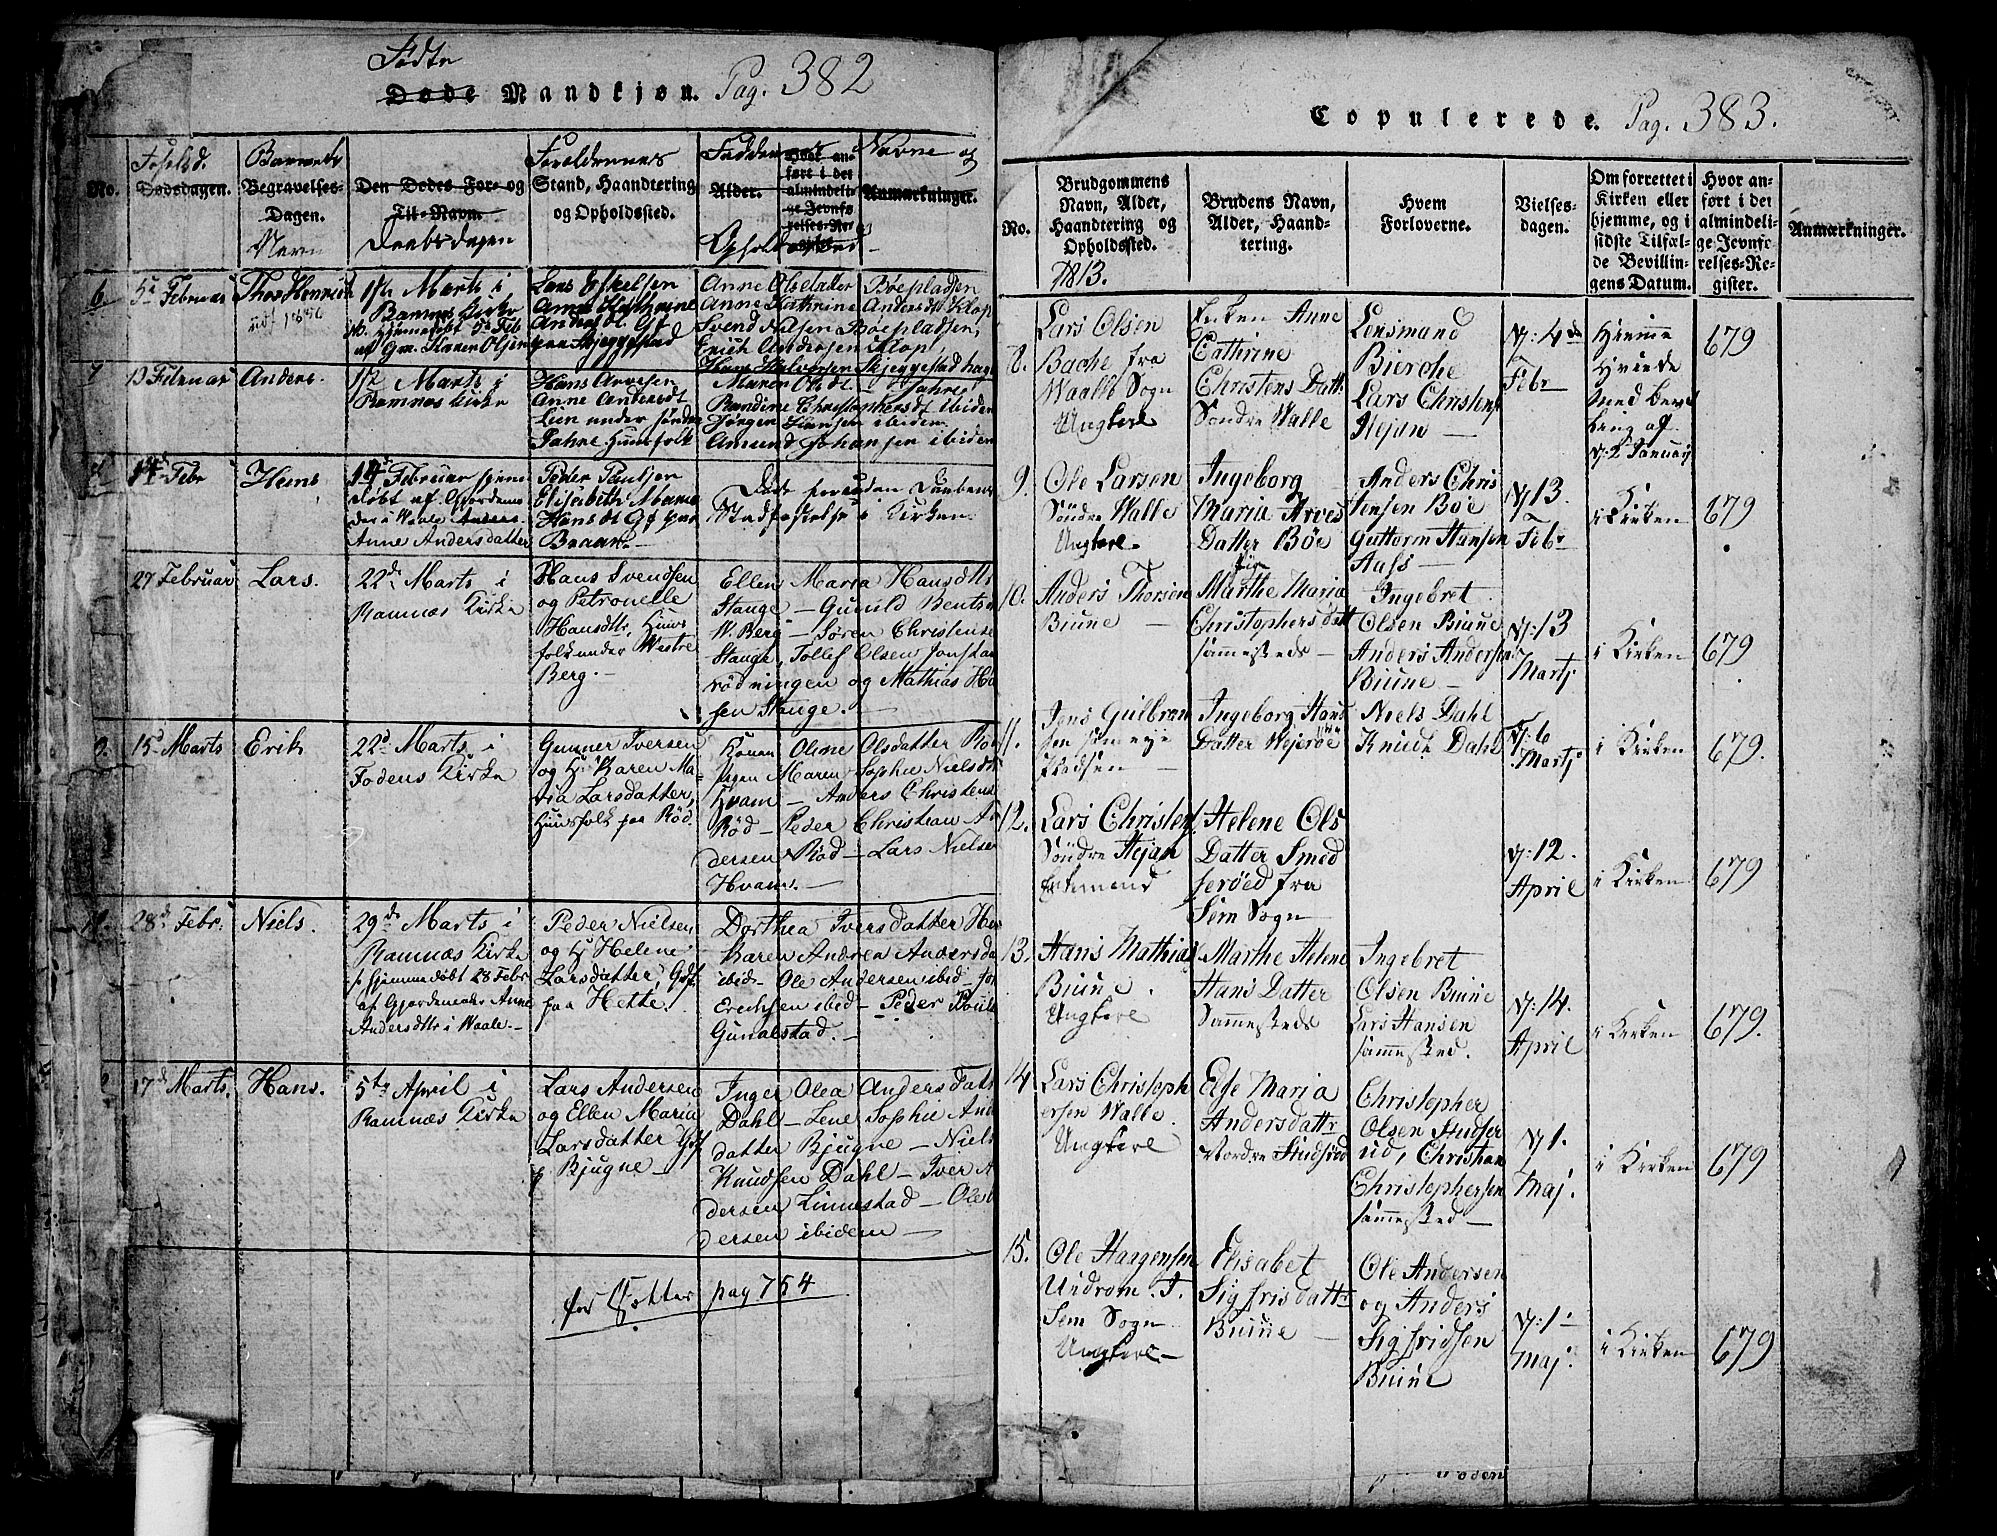 Fødte
Døde Mandkjøn. Pag. 382
No.
Føselsd.
Dødsdagen.
Barnets
Begravelses-
Dagen.
Navn
Den Dødes For- og
Til-Navn.
Daabsdagen
Foraldrenes
Stand, Haandtering
og Opholdssted.
Fadderes Navne og
Alder.
Hvor an-
ført i det
almindeli-
ge Jevnfø-
relses-Re-
gister.
Anmærkninger.
Ophold sted
6
5te Februar
Thor Henrich
1/2 Marts i
Ramnes Kirke
Hjemmedøbt 5te Feb
af Gm. Karen Olsen
Lars Eskelsen
Anne Kathrine
Andersdt Gf
paa Skjeggestad
Anne Olsdatter Bøepladsen
Anne Kathrine Andersdt Klop
Svend Nilsen Bøepladsen,
Erich Andersen Klop,
Hans Halvorsen Skjeggestad hage
7
13 Februar
Anders.
1/2 Marts i
Ramnæs Kirke
Hans Arvesen
Anne Andersdt
Lien under søndre
Jahre Huusfolk
Maren Olsdt Jahre
Randine Christophersdt ibidem
Jørgen Hansen ibidem
Amund Johansen ibidem
14d Febr
Hans
14d Februar hjemme
døbt af Gjordemo
der i Waale
Anne Andersdatter
Peder Paulsen
Elisabeth Marie
Hansdt Gf paa
Braan.
Døde foruden Daabens
Stadfæstelse i Kirken.
27 Februar
Lars.
22d Marts i
Ramnæs Kirke
Hans Svendsen
og Petronelle
Hansdttr, Huus
folk under Westre
Berg.
Ellen Maria Hansdttr
Stange - Gunild Bentsd
W. Berg - Søren Christense
Stange, Tollef Olsen
rødningen og Mathias Ha
sen Stange.
9.
15d Marts
Erik
22d Marts i
Fodens Kirke
Gunner Iversen
og H. Karen Ma-
ria Larsdatter,
Huusfolk paa Rød.
Konen Oline Olsdatter Rød
Pigen Maren Sophie Nielsdtr
Hvam - Anders Christense
Rød - Peder Christian An
dersen Rød - Lars Nielsen
Hvam.
28d Febr.
Niels.
29de Marts i
Ramnæs Kirke
Hjemmedøbt 28 Febr
af Gjordemoder Anne
Andersdttr i Waale.
Peder Nielsen
og H Helene
Larsdatter, Gdf
paa Hette.
Dorthea Iversdatter He
Karen Andrea Andersda
ibid - Ole Andersen ibid
Erichsen ibid - Peder Poule
Gunalstad.
17d Marts.
Hans.
5te April i
Ramnæs Kirke
Lars Andersen
og Ellen Maria
Larsdatter Gdf
p Bjugne
Inger Olea Anders Datt
Dahl - Lene Sophie And
datter Bjugne - Niels
Knudsen Dahl - Iver A
dersen Linnestad - Ole
dersen ibidem
for Døttre pag 754
Copulerede. Pag. 383.
No.
Brudgommens
Navn, Alder,
Haandtering og
Opholdssted.
1813.
Brudens Navn,
Alder, Haand-
tering.
Hvem
Forloverne.
Vielses-
dagen.
Om forrettet i
Kirken eller
hjemme, og i
sidste Tilfæl-
de Bevillin-
gens Datum.
Hvor an-
ført i det
almindeli-
ge Jevnfø-
relses-Re-
gister.
Anmærkninger.
8.
Lars Olsen
Bache fra
Waalle Sogn
Ungkarl
Enken Anne
Cathrine
Christens Datt
Søndre Walle
Lensmand
Bierche
Lars Christens
Hejan
D: 4de
Febr
Hiemme
Hviede
med Bevil
ling af
D: 2 January
679
9.
Ole Larsen
Søndre Walle
Ungkarl.
Ingeborg
Maria Arves
Datter Bøe
Pige
Anders Chris
tensen Bøe
Guttorm Hansen
Aass
D 13.
Febr
i Kirken
679
10.
Anders Thorsen
Biune
Marthe Maria
Christophersdatt
sammesteds
Ingebret
Olsen Biune
Anders Andersen
Biune
D: 13
Martj
i Kirken
679
11.
Jens Gulbran
sen
Ingeborg Hans
Datter Wejerøe
Niels Dahl
Knud Dahl
D: 6
Martj
i Kirken
679.
12.
Lars Christens
Søndre Hejan
Enkemand
Helene Ols
Datter Smed
serøed fra
Sem Sogn
D: 12.
April
i Kirken
679
13.
Hans Mathias
Biune.
Ungkarl
Marthe Helene
Hans Datter
Sammesteds
Ingebret
Olsen Biune
Lars Hansen
sammested.
D: 14.
April
i Kirken
679.
14
Lars Christoph
ersen Walle
Ungkarl
Else Maria
Andersdattr
Nordre Studsrød
Christopher
Olsen Studser
ud, Christian
Christophersen
sammested
D 1.
Maj.
i Kirken
679
15.
Ole Haagensen
Undrom. I.
Sem Sogn
Ungkarl.
Elisabet
Sigfrisdattr
Biune
Ole Andersen
og Anders
Sigfridsen
Biune
D: 1
Maj.
i Kirken
679